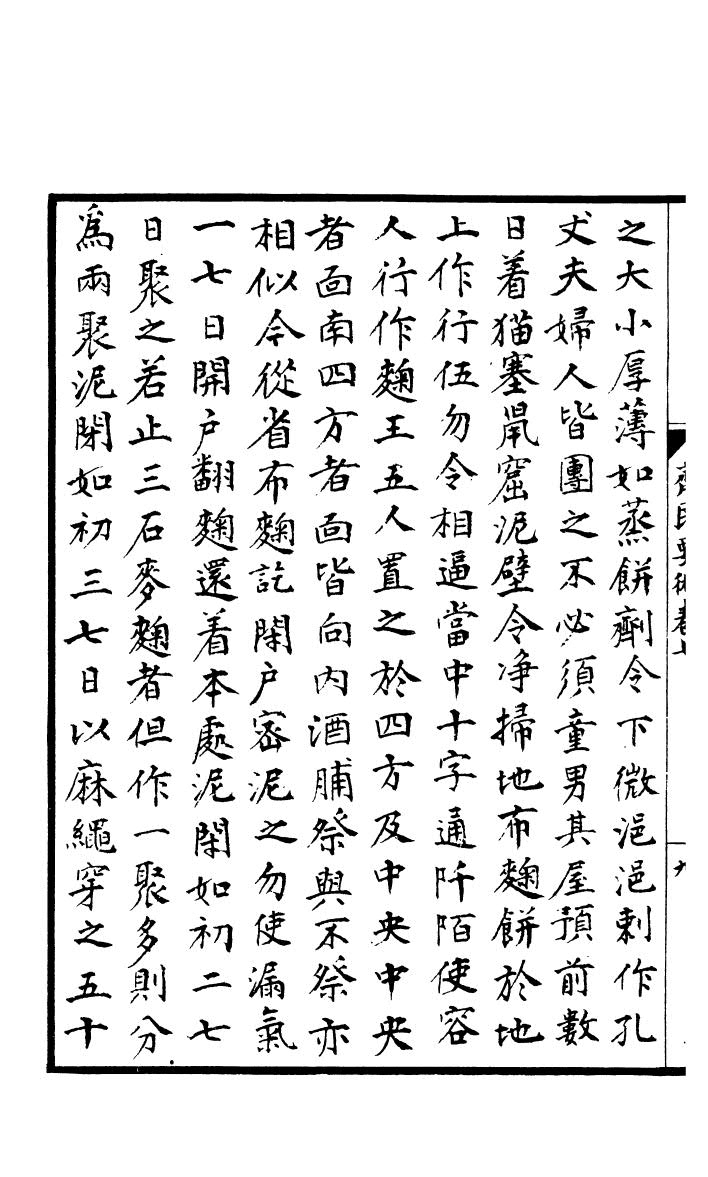 之大小厚薄如蒸餅劑令下微浥浥刺作孔
丈夫婦人皆團之不必須童男其屋預前數
日着猫塞鼠窟泥壁令净掃地布麹餅於地
上作行伍勿令相逼當中十字通阡陌使容
人行作麹王五人置之於四方及中央中央
者面南四方者面皆向内酒脯祭與不祭亦
相似今從省布麹訖閉户密泥之勿使漏氣
一七日開户翻麹還着本處泥閉如初二七
日聚之若止三石麥麹者但作一聚多則分
爲兩聚泥閉如初三七日以麻繩穿之五十
齊民要術卷七
九